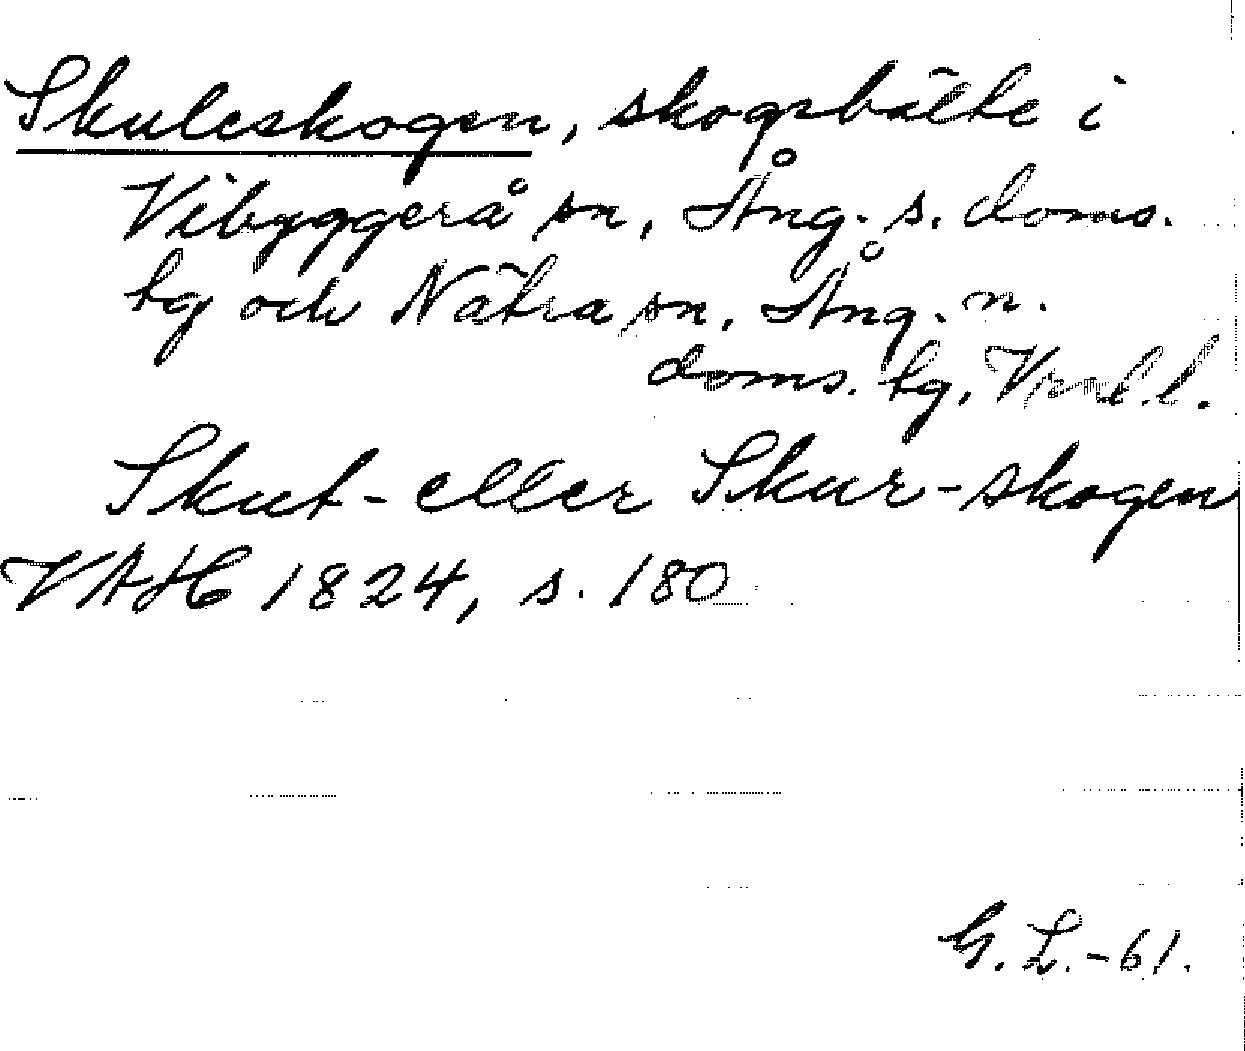 Skuleskogen, skogsbälte i
Vibyggerå sn, Ång. s. doms.
tg och Nätra sn, Ång. n.
doms. tg, Vnl. l.
Skut- eller Skur-skogen
VAH 1824, s. 180
G. L. -61.